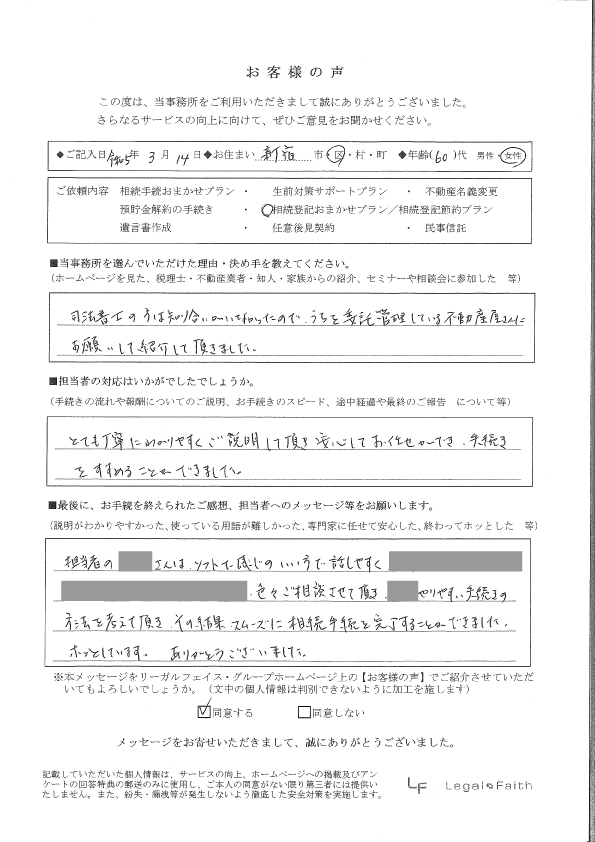 お客様の声
この度は、当事務所をご利用いただきまして誠にありがとうございました。
さらなるサービスの向上に向けて、ぜひご意見をお聞かせください。
◆ご記入日 令和5年 3月 14日◆お住まい 新宿 市・区・村・町 ◆年齢(60)代 男性・女性
ご依頼内容 相続手続おまかせプラン ・ 生前対策サポートプラン ・ 不動産名義変更
預貯金解約の手続き ・ 相続登記おまかせプラン／相続登記節約プラン
遺言書作成 ・ 任意後見契約 ・ 民事信託
■当事務所を選んでいただけた理由・決め手を教えてください。
（ホームページを見た、税理士・不動産業者・知人・家族からの紹介、セミナーや相談会に参加した 等）
司法書士の方は知り合いがいなかったので、うちを委託管理している不動産屋さんに
お願いして紹介して頂きました。
■担当者の対応はいかがでしたでしょうか。
（手続きの流れや報酬についてのご説明、お手続きのスピード、途中経過や最終のご報告 について等）
とても丁寧にわかりやすくご説明して頂き安心してお任せができ、手続き
をすすめることができました。
■最後に、お手続を終えられたご感想、担当者へのメッセージ等をお願いします。
（説明がわかりやすかった、使っている用語が難しかった、専門家に任せて安心した、終わってホッとした 等）
担当者の さんは、ソフトで感じのいい方で話しやすく
、色々ご相談させて頂き、 やりやすい手続きの
方法を考えて頂き、その結果スムーズに相続手続を完了することができました。
ホッとしています。 ありがとうございました。
※本メッセージをリーガルフェイス・グループホームページ上の【お客様の声】でご紹介させていただ
いてもよろしいでしょうか。（文中の個人情報は判別できないように加工を施します）
☑同意する □同意しない
メッセージをお寄せいただきまして、誠にありがとうございました。
記載していただいた個人情報は、サービスの向上、ホームページへの掲載及びアン
ケートの回答特典の郵送のみに使用し、ご本人の同意がない限り第三者には提供い
たしません。また、紛失・漏洩等が発生しないよう徹底した安全対策を実施します。
LF Legal Faith